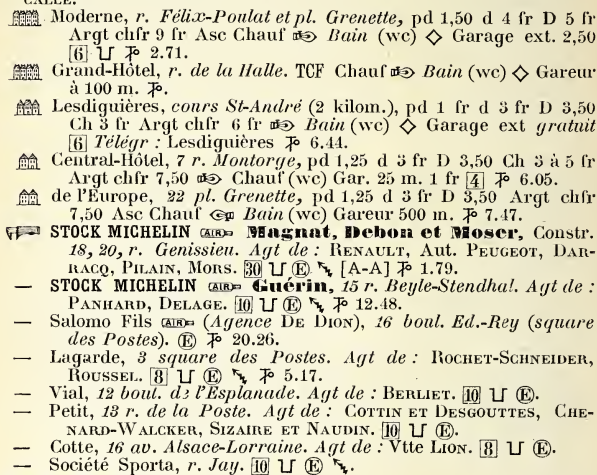 CALLE.
Moderne, r. Félix-Poulat et pl. Grenette, pd 1,50 d 4 fr D 5 fr
Argt chfr 9 fr Asc Chauf Bain (wc) ◇ Garage ext. 2,50
[6] U 2.71.
Grand-Hôtel, r. de la Halle. TCF Chauf Bain (wc) ◇ Gareur
à 100 m.
Lesdiguières, cours St-André (2 kilom.), pd 1 fr d 3 fr D 3,50
Ch 3 fr Argt chfr 6 fr Bain (wc) ◇ Garage ext gratuit
[6] Télégr : Lesdiguières 6.44.
Central-Hôtel, 7 r. Montorge, pd 1,25 d 3 fr D 3,50 Ch 3 à 5 fr
Argt chfr 7,50 Chauf (wc) Gar. 25 m. 1 fr [4] 6.05.
de l'Europe, 22 pl. Grenette, pd 1,25 d 3 fr D 3,50 Argt chfr
7,50 Asc Chauf Bain (wc) Gareur 500 m. 7.47.
STOCK MICHELIN AIR Magnat, Debon et Moser, Constr.
18, 20, r. Genissieu. Agt de : RENAULT, Aut. PEUGEOT, DAR-
RACQ, PILAIN, MORS. [30] U (E) [A-A] 1.79.
— STOCK MICHELIN AIR Guérin, 15 r. Beyle-Stendhal. Agt de :
PANHARD, DELAGE. [10] U (E) 12.48.
— Salomo Fils AIR (Agence DE DION), 16 boul. Ed.-Rey (square
des Postes). (E) 20.26.
— Lagarde, 3 square des Postes. Agt de : ROCHET-SCHNEIDER,
ROUSSEL. [8] U (E) 5.17.
— Vial, 12 boul. de l'Esplanade. Agt de : BERLIET. [10] U (E).
— Petit, 13 r. de la Poste. Agt de : COTTIN ET DESGOUTTES, CHE-
NARD-WALCKER, SIZAIRE ET NAUDIN. [10] U (E).
— Cotte, 16 av. Alsace-Lorraine. Agt de : Vtte LION. [8] U (E).
— Société Sporta, r. Jay. [10] U (E).